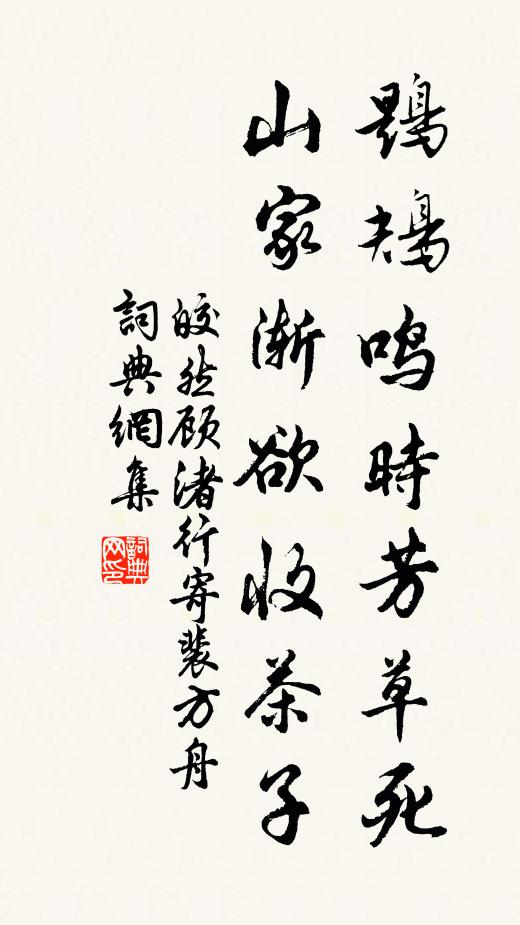 鶗鴂鳴時芳草死
山家漸欲收茶子
皎然顧渚行寄裴方舟
詞典網集
詞典网印